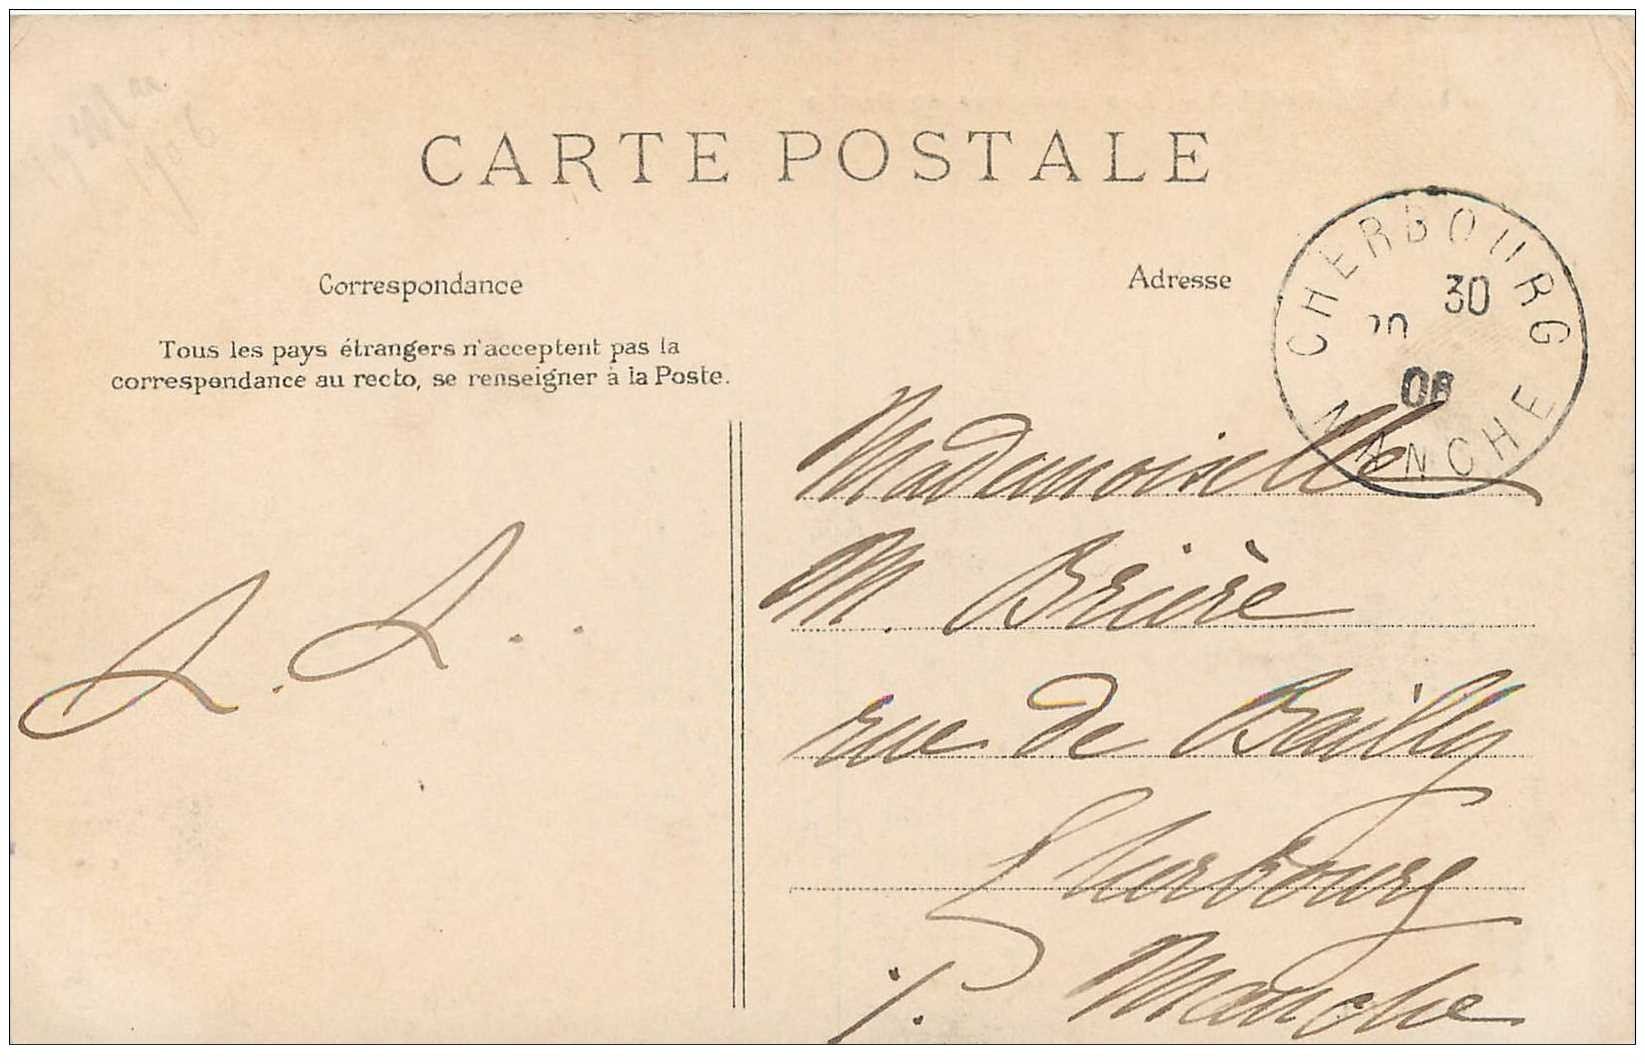 CARTE POSTALE
Correspondance
Tous les pays étrangers n'acceptent pas la
correspondance au recto, se renseigner à la Poste.
Adresse
CHERBOURG
30
08
MANCHE
Mademoiselle
M. Brière
rue de Bailly
Cherbourg
Manche